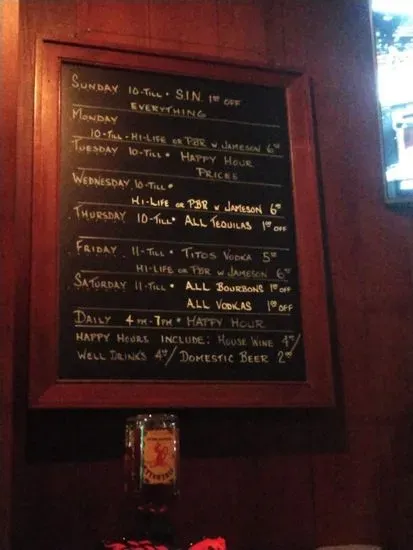 SUNDAY 10-TILL • S.I.N. 1⁰⁰ OFF
EVERYTHING
MONDAY
10-TILL - HI-LIFE OR PBR W JAMESON 6⁰⁰
TUESDAY 10-TILL • HAPPY HOUR
PRICES
WEDNESDAY 10-TILL •
HI-LIFE OR PBR W JAMESON 6⁰⁰
THURSDAY 10-TILL • ALL TEQUILAS 1⁰⁰ OFF
FRIDAY 11-TILL • TITOS VODKA 5⁰⁰
HI-LIFE OR PBR W JAMESON 6⁰⁰
SATURDAY 11-TILL • ALL BOURBONS 1⁰⁰ OFF
ALL VODKAS 1⁰⁰ OFF
DAILY 4PM-7PM • HAPPY HOUR
HAPPY HOURS INCLUDE: HOUSE WINE 4⁰⁰/
WELL DRINKS 4⁰⁰/ DOMESTIC BEER 2⁰⁰